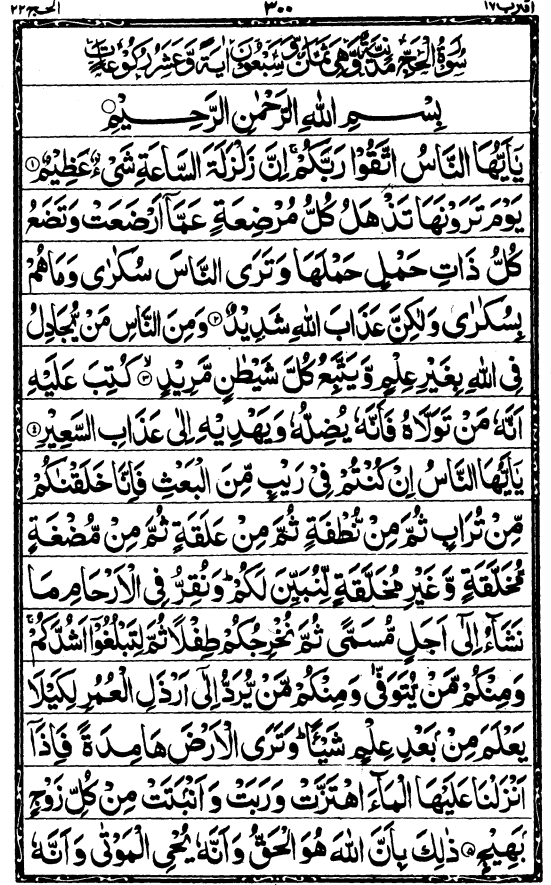 اقترب ١٧ ٣٠٠ الحج ٢٢
سُوْرَةُ الْحَجِّ مَدَنِيَّةٌ وَّهِىَ ثَمَانٌ وَّسَبْعُوْنَ اٰيَةً وَّعَشَرُ رُكُوْعَاتٍ
بِسْمِ اللّٰهِ الرَّحْمٰنِ الرَّحِيْمِ
يٰۤاَيُّهَا النَّاسُ اتَّقُوْا رَبَّكُمْ ۚ اِنَّ زَلْزَلَةَ السَّاعَةِ شَىْءٌ عَظِيْمٌ ۝١
يَوْمَ تَرَوْنَهَا تَذْهَلُ كُلُّ مُرْضِعَةٍ عَمَّاۤ اَرْضَعَتْ وَتَضَعُ
كُلُّ ذَاتِ حَمْلٍ حَمْلَهَا وَتَرَى النَّاسَ سُكٰرٰى وَمَا هُمْ
بِسُكٰرٰى وَلٰكِنَّ عَذَابَ اللّٰهِ شَدِيْدٌ ۝٢ وَمِنَ النَّاسِ مَنْ يُّجَادِلُ
فِى اللّٰهِ بِغَيْرِ عِلْمٍ وَّيَتَّبِعُ كُلَّ شَيْطٰنٍ مَّرِيْدٍ ۙ‏۝٣ كُتِبَ عَلَيْهِ
اَنَّهٗ مَنْ تَوَلَّاهُ فَاَنَّهٗ يُضِلُّهٗ وَيَهْدِيْهِ اِلٰى عَذَابِ السَّعِيْرِ ۝٤
يٰۤاَيُّهَا النَّاسُ اِنْ كُنْتُمْ فِىْ رَيْبٍ مِّنَ الْبَعْثِ فَاِنَّا خَلَقْنٰكُمْ
مِّنْ تُرَابٍ ثُمَّ مِنْ نُّطْفَةٍ ثُمَّ مِنْ عَلَقَةٍ ثُمَّ مِنْ مُّضْغَةٍ
مُّخَلَّقَةٍ وَّغَيْرِ مُخَلَّقَةٍ لِّنُبَيِّنَ لَكُمْ ؕ وَنُقِرُّ فِى الْاَرْحَامِ مَا
نَشَآءُ اِلٰۤى اَجَلٍ مُّسَمًّى ثُمَّ نُخْرِجُكُمْ طِفْلًا ثُمَّ لِتَبْلُغُوْۤا اَشُدَّكُمْ ۚ
وَمِنْكُمْ مَّنْ يُّتَوَفّٰى وَمِنْكُمْ مَّنْ يُّرَدُّ اِلٰۤى اَرْذَلِ الْعُمُرِ لِكَيْلَا
يَعْلَمَ مِنْۢ بَعْدِ عِلْمٍ شَيْـًٔا ؕ وَتَرَى الْاَرْضَ هَامِدَةً فَاِذَاۤ
اَنْزَلْنَا عَلَيْهَا الْمَآءَ اهْتَزَّتْ وَرَبَتْ وَاَنْۢبَتَتْ مِنْ كُلِّ زَوْجٍۢ
بَهِيْجٍ ۝٥ ذٰلِكَ بِاَنَّ اللّٰهَ هُوَ الْحَقُّ وَاَنَّهٗ يُحْىِ الْمَوْتٰى وَاَنَّهٗ